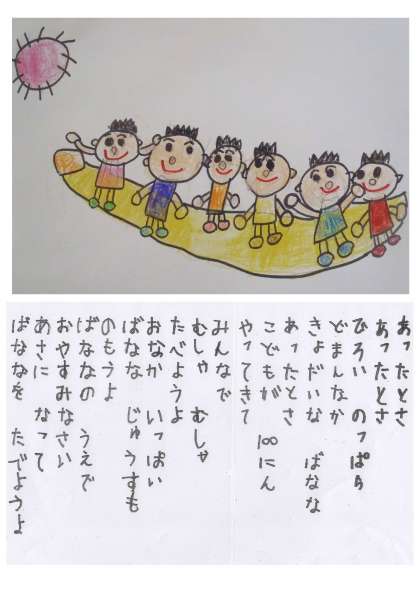 あったとさ
あったとさ
ひろい のっぱら
どまんなか
きょだいな ばなな
あったとさ
こどもが 100にん
やってきて
みんなで
むしゃ むしゃ
たべようよ
おなか いっぱい
ばなな じゅうすも
のもうよ
ばななの うえで
おやすみなさい
あさに なって
ばななを たでようよ